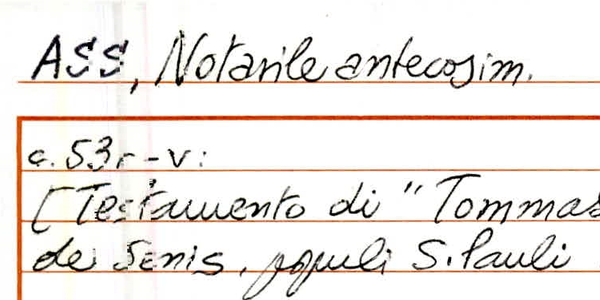 ASS, Notarile antecosim.
c. 53r-v:
[Testamento di "Tommas
de Senis, populi S. Pauli